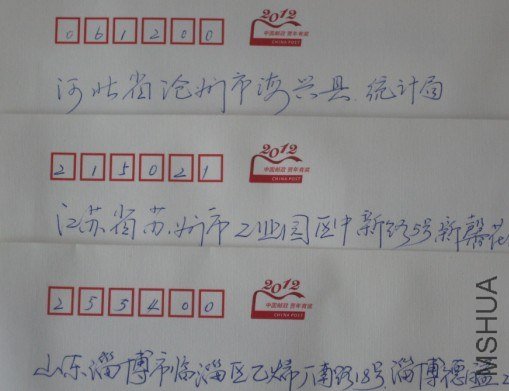 061200
2012
中国邮政 贺年有奖
CHINA POST
河北省沧州市海兴县.统计局
215021
2012
中国邮政 贺年有奖
CHINA POST
江苏省苏州市工业园区中新路5号新馨花
255400
2012
中国邮政 贺年有奖
CHINA POST
山东淄博市临淄区乙烯厂南路18号淄博德
MSHUA